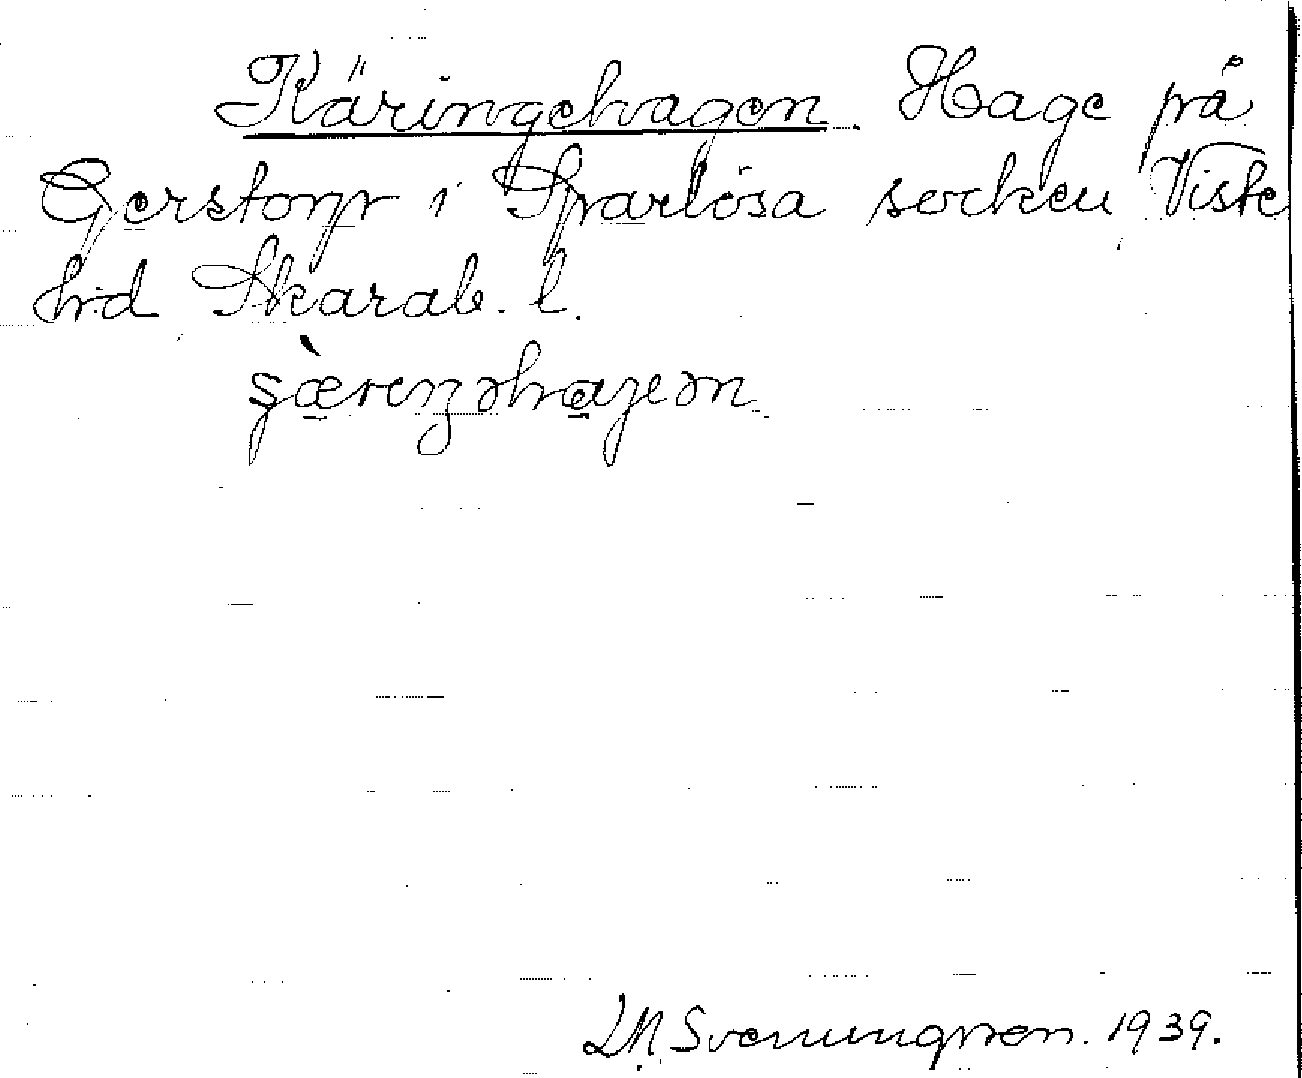 Käringehagen. Hage på
Gerstorp i Sparlösa socken Viste
hd Skarab. l.
Svenungsson. 1939.